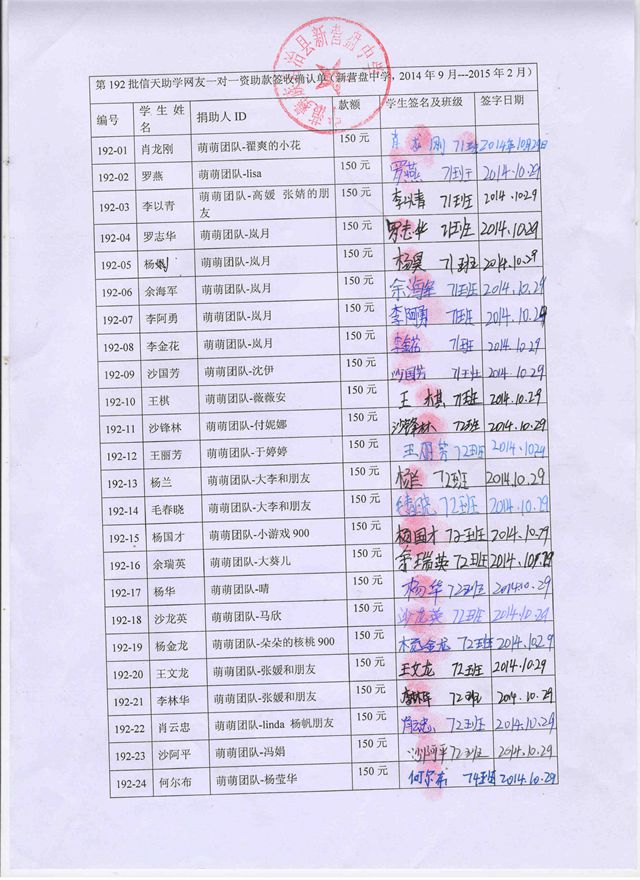 治县新营盘中学
第192批信天助学网友一对一资助款签收确认单（新营盘中学，2014年9月---2015年2月）
编号 学生姓名 捐助人ID 款额 学生签名及班级 签字日期
192-01 肖龙刚 萌萌团队-翟爽的小花 150元 肖龙刚 71班 2014年10月29日
192-02 罗燕 萌萌团队-lisa 150元 罗燕 71班 2014.10.29
192-03 李以青 萌萌团队-高媛 张婧的朋友 150元 李以青 71班 2014.10.29
192-04 罗志华 萌萌团队-岚月 150元 罗志华 71班 2014.10.29
192-05 杨 萌萌团队-岚月 150元 杨昊 71班 2014.10.29
192-06 余海军 萌萌团队-岚月 150元 余海军 71班 2014.10.29
192-07 李阿勇 萌萌团队-岚月 150元 李阿勇 71班 2014.10.29
192-08 李金花 萌萌团队-岚月 150元 71班 2014.10.29
192-09 沙国芳 萌萌团队-沈伊 150元 沙国芳 71班 2014.10.29
192-10 王棋 萌萌团队-薇薇安 150元 王棋 71班 2014.10.29
192-11 沙锋林 萌萌团队-付妮娜 150元 沙锋林 72班 2014.10.29
192-12 王丽芳 萌萌团队-于婷婷 150元 王丽芳 72班 2014.10.29
192-13 杨兰 萌萌团队-大李和朋友 150元 杨兰 72班 2014.10.29
192-14 毛春晓 萌萌团队-大李和朋友 150元 72班 2014.10.29
192-15 杨国才 萌萌团队-小游戏900 150元 杨国才 72班 2014.10.29
192-16 余瑞英 萌萌团队-大葵儿 150元 余瑞英 72班 2014.10.29
192-17 杨华 萌萌团队-晴 150元 杨华 72班 2014.10.29
192-18 沙龙英 萌萌团队-马欣 150元 沙龙英 72班 2014.10.29
192-19 杨金龙 萌萌团队-朵朵的核桃900 150元 杨金龙 72班 2014.10.29
192-20 王文龙 萌萌团队-张媛和朋友 150元 王文龙 72班 2014.10.29
192-21 李林华 萌萌团队-张媛和朋友 150元 李林华 72班 2014.10.29
192-22 肖云忠 萌萌团队-linda 杨帆朋友 150元 肖云忠 72班 2014.10.29
192-23 沙阿平 萌萌团队-冯娟 150元 沙阿平 72班 2014.10.29
192-24 何尔布 萌萌团队-杨莹华 150元 何尔布 74班 2014.10.29